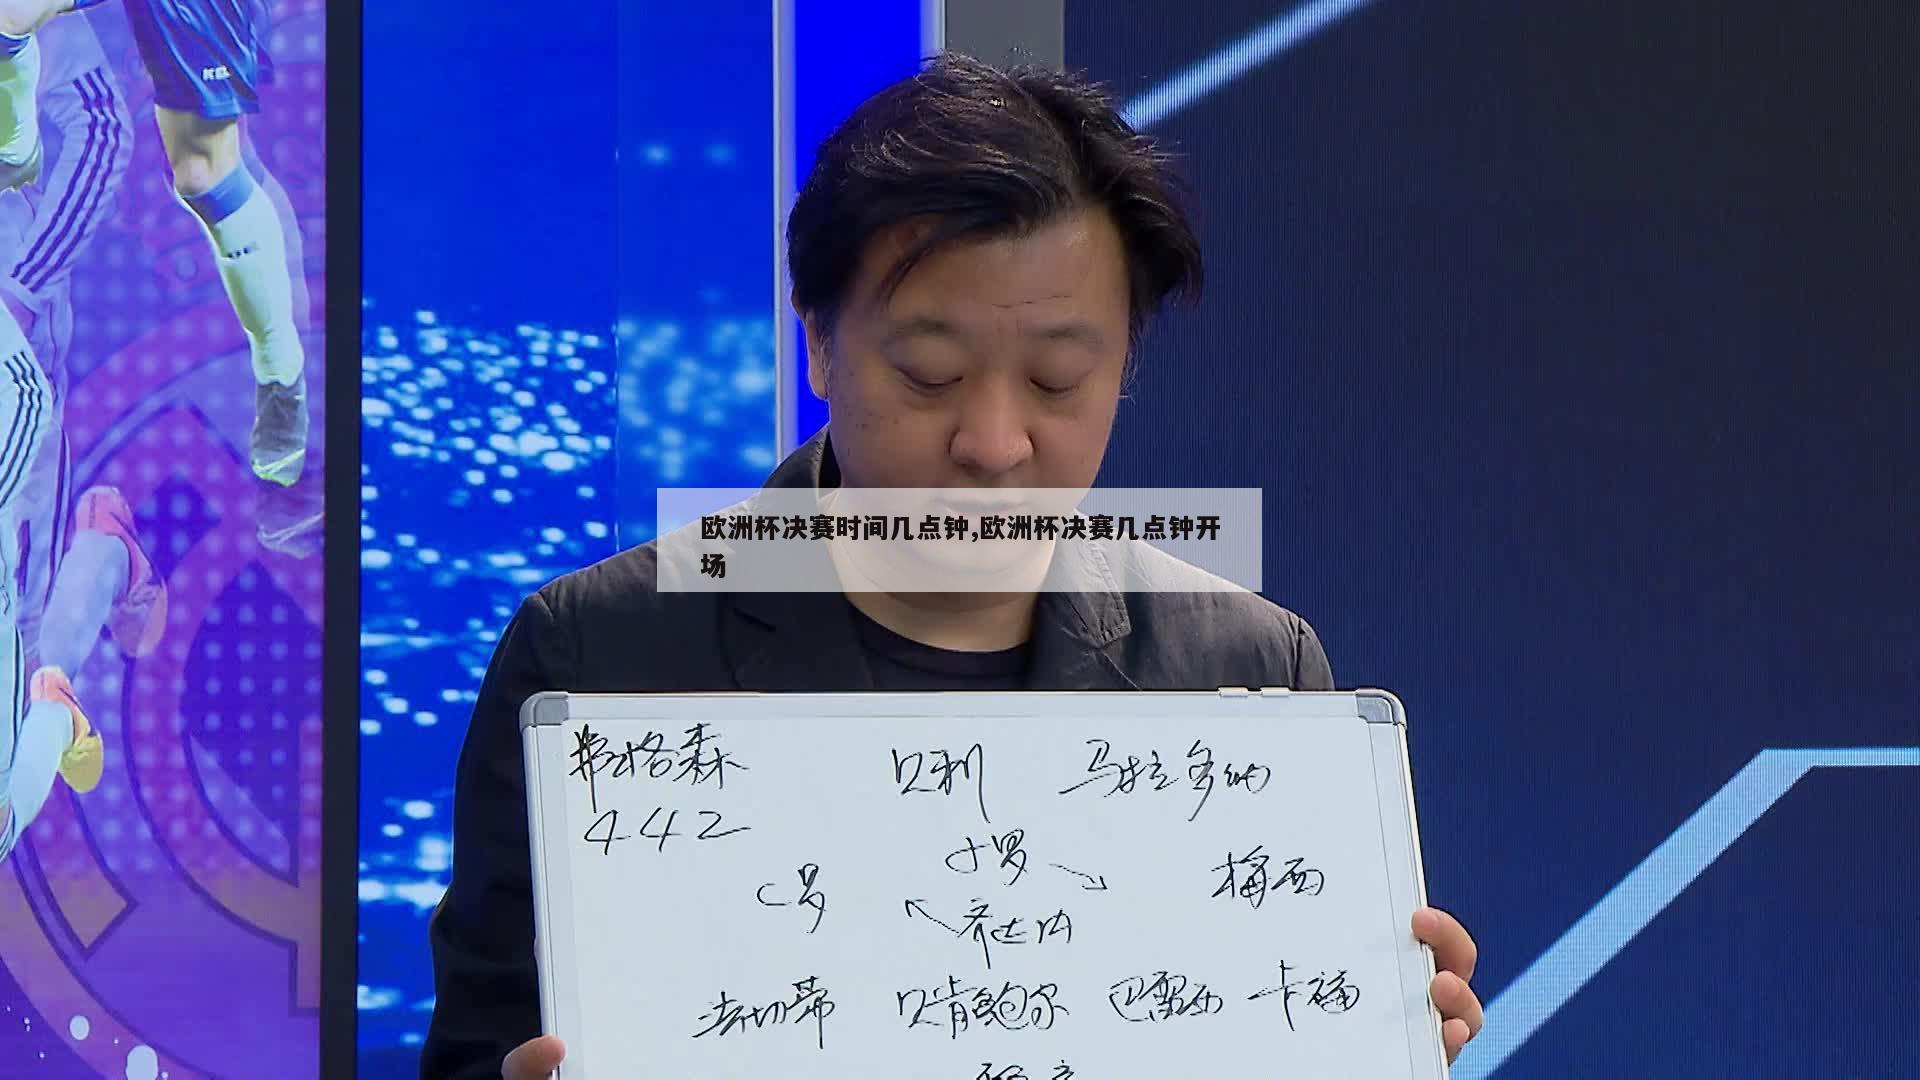 欧洲杯决赛时间几点钟,欧洲杯决赛几点钟开
场
弗格森 贝利 马拉多纳
442
小罗
C罗 梅西
齐达内
法切蒂 贝肯鲍尔 巴雷西 卡福